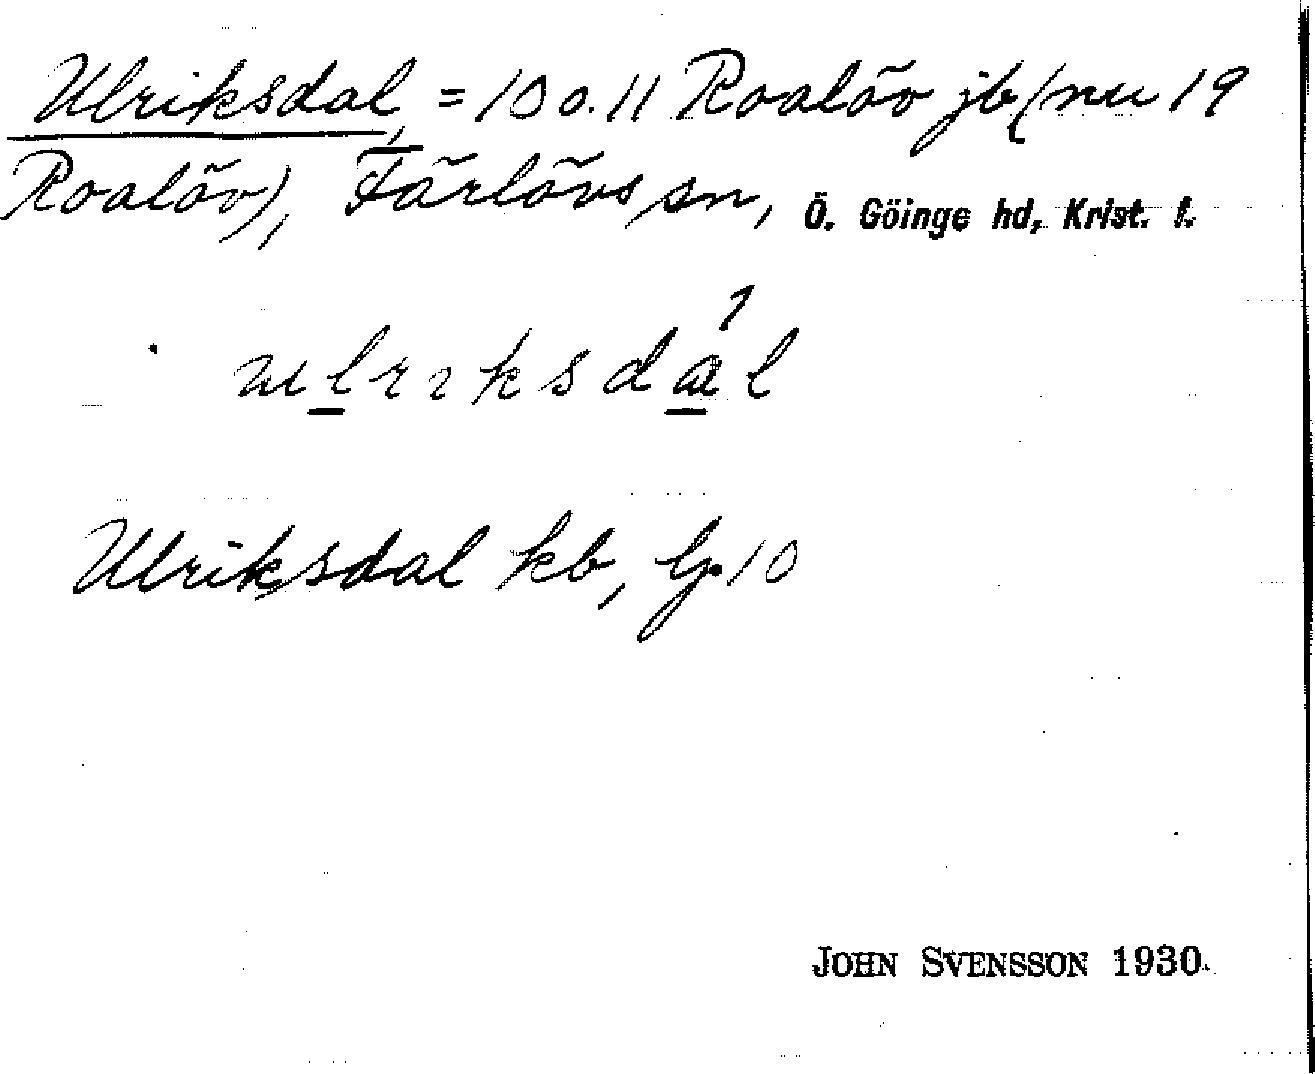 Ulriksdal, = 10 o. 11 Roalöv jb (nu 19
Roalöv), Färlövs sn, Ö. Göinge hd, Krist. l.
ulrıksdál
Ulriksdal kb, lg. 10
JOHN SVENSSON 1930.